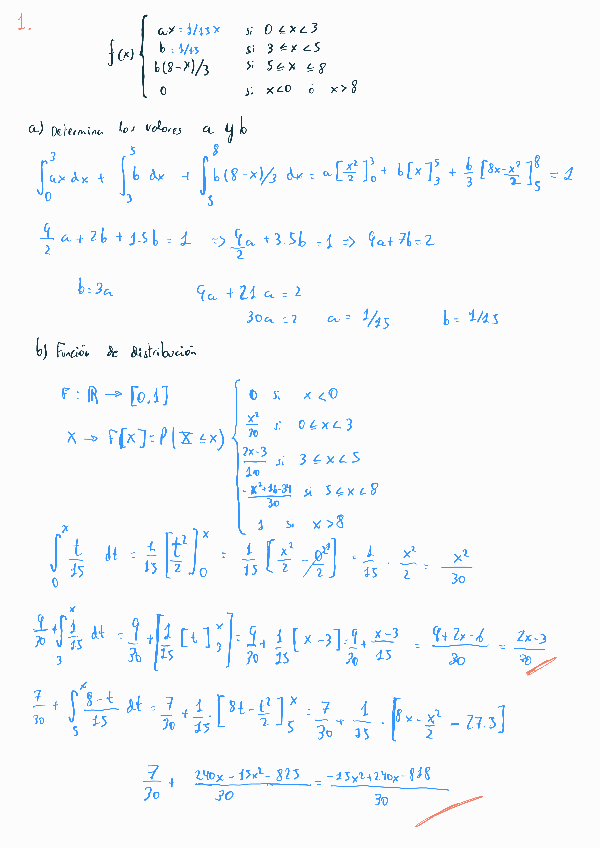 1.
f(x) { ax = 1/15x si 0 ≤ x < 3
b = 1/15 si 3 ≤ x < 5
b(8-x)/3 si 5 ≤ x ≤ 8
0 si x<0 ó x>8
a) Determina los valores a y b
∫₀³ ax dx + ∫₃⁵ b dx + ∫₅⁸ b(8-x)/3 dx = a[x²/2]₀³ + b[x]₃⁵ + b/3 [8x-x²/2]₅⁸ = 1
9/2 a + 2b + 1.5b = 1 => 9/2 a + 3.5b = 1 => 9a + 7b = 2
b = 3a 9a + 21a = 2
30a = 2 a = 1/15 b = 1/15
b) Función de distribución
F : ℝ → [0,1]
x → F[x] = P(X ≤ x) { 0 si x < 0
x²/30 si 0 ≤ x < 3
2x-3/10 si 3 ≤ x < 5
-x²+16-34/30 si 5 ≤ x < 8
1 si x > 8
∫₀ˣ t/15 dt = 1/15 [t²/2]₀ˣ = 1/15 [x²/2 - 0²/2] = 1/15 · x²/2 = x²/30
9/30 + ∫₃ˣ 1/15 dt = 9/30 + [1/15 [t]₃ˣ] = 9/30 + 1/15 [x-3] = 9/30 + x-3/15 = 9+2x-6/30 = 2x-3/30
7/30 + ∫₅ˣ 8-t/15 dt = 7/30 + 1/15 · [8t - t²/2]₅ˣ = 7/30 + 1/15 · [8x - x²/2 - 27.5]
7/30 + 240x - 15x² - 825/30 = -15x²+240x-818/30